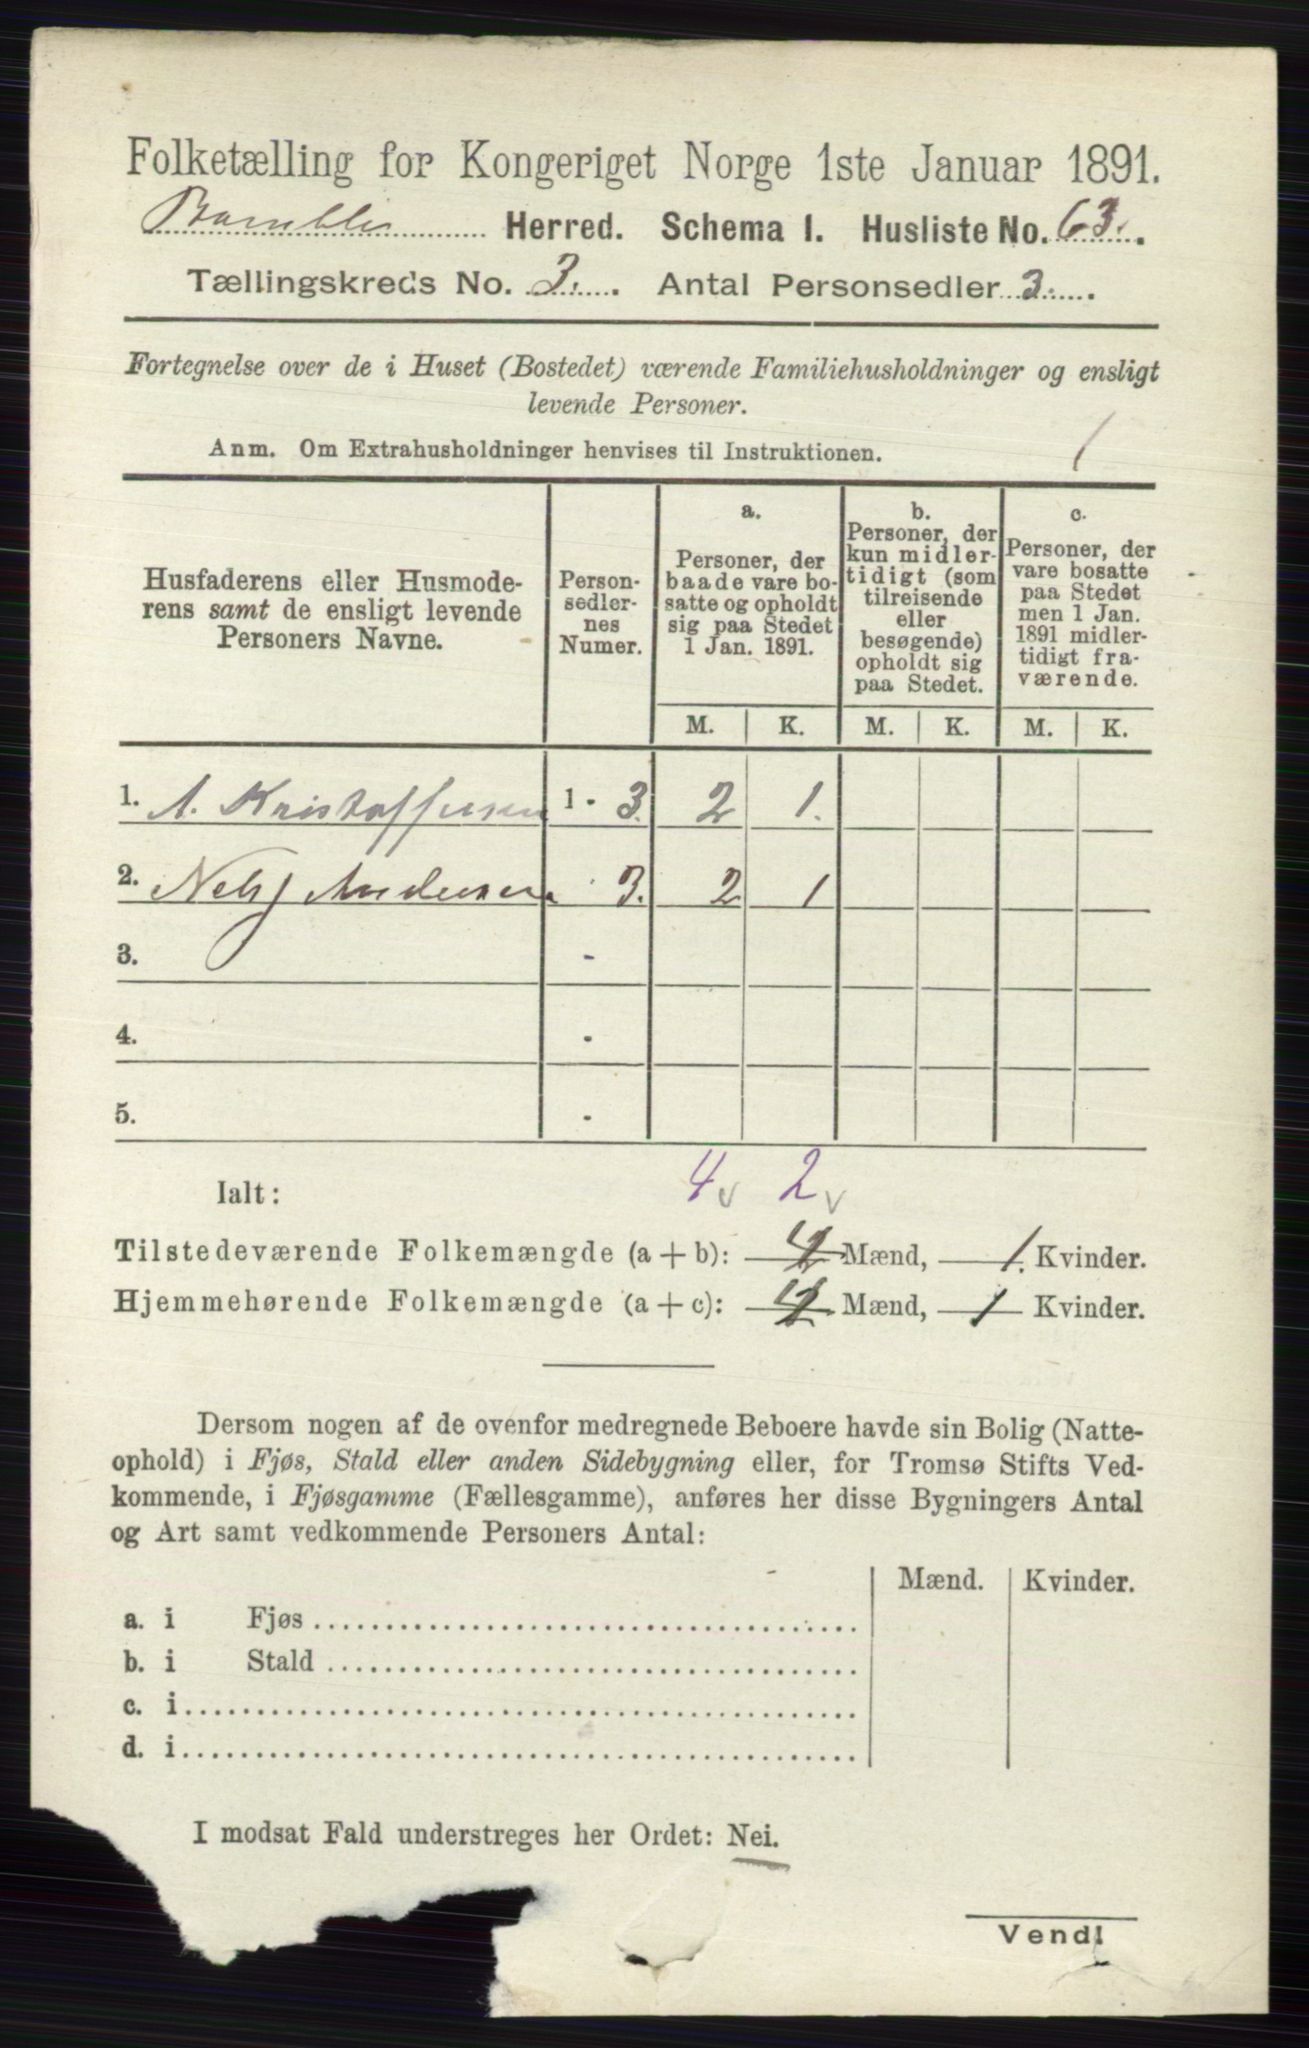 Folketælling for Kongeriget Norge 1ste Januar 1891.
Bamble Herred. Schema I. Husliste No. 63.
Tællingskreds No. 3. Antal Personsedler 3.
Fortegnelse over de i Huset (Bostedet) værende Familiehusholdninger og ensligt
levende Personer.
Anm. Om Extrahusholdninger henvises til Instruktionen.
1
Husfaderens eller Husmode-
rens samt de ensligt levende
Personers Navne.
Person-
sedler-
nes
Numer.
a.
Personer, der
baade vare bo-
satte og opholdt
sig paa Stedet
1 Jan. 1891.
b.
Personer, der
kun midler-
tidigt (som
tilreisende
eller
besøgende)
opholdt sig
paa Stedet.
c.
Personer, der
vare bosatte
paa Stedet
men 1 Jan.
1891 midler-
tidigt fra-
værende.
M. K. M. K. M. K.
1. A. Kristoffersen 1 - 3. 2 1.
2. Nels J Andersen 3. 2 1
3. -
4. -
5. -
Ialt: 4 v 2 v
Tilstedeværende Folkemængde (a + b): 4 Mænd, 1. Kvinder.
Hjemmehørende Folkemængde (a + c): 4 Mænd, 1 Kvinder.
Dersom nogen af de ovenfor medregnede Beboere havde sin Bolig (Natte-
ophold) i Fjøs, Stald eller anden Sidebygning eller, for Tromsø Stifts Ved-
kommende, i Fjøsgamme (Fællesgamme), anføres her disse Bygningers Antal
og Art samt vedkommende Personers Antal:
Mænd. Kvinder.
a. i Fjøs
b. i Stald
c. i
d. i
I modsat Fald understreges her Ordet: Nei.
Vend!